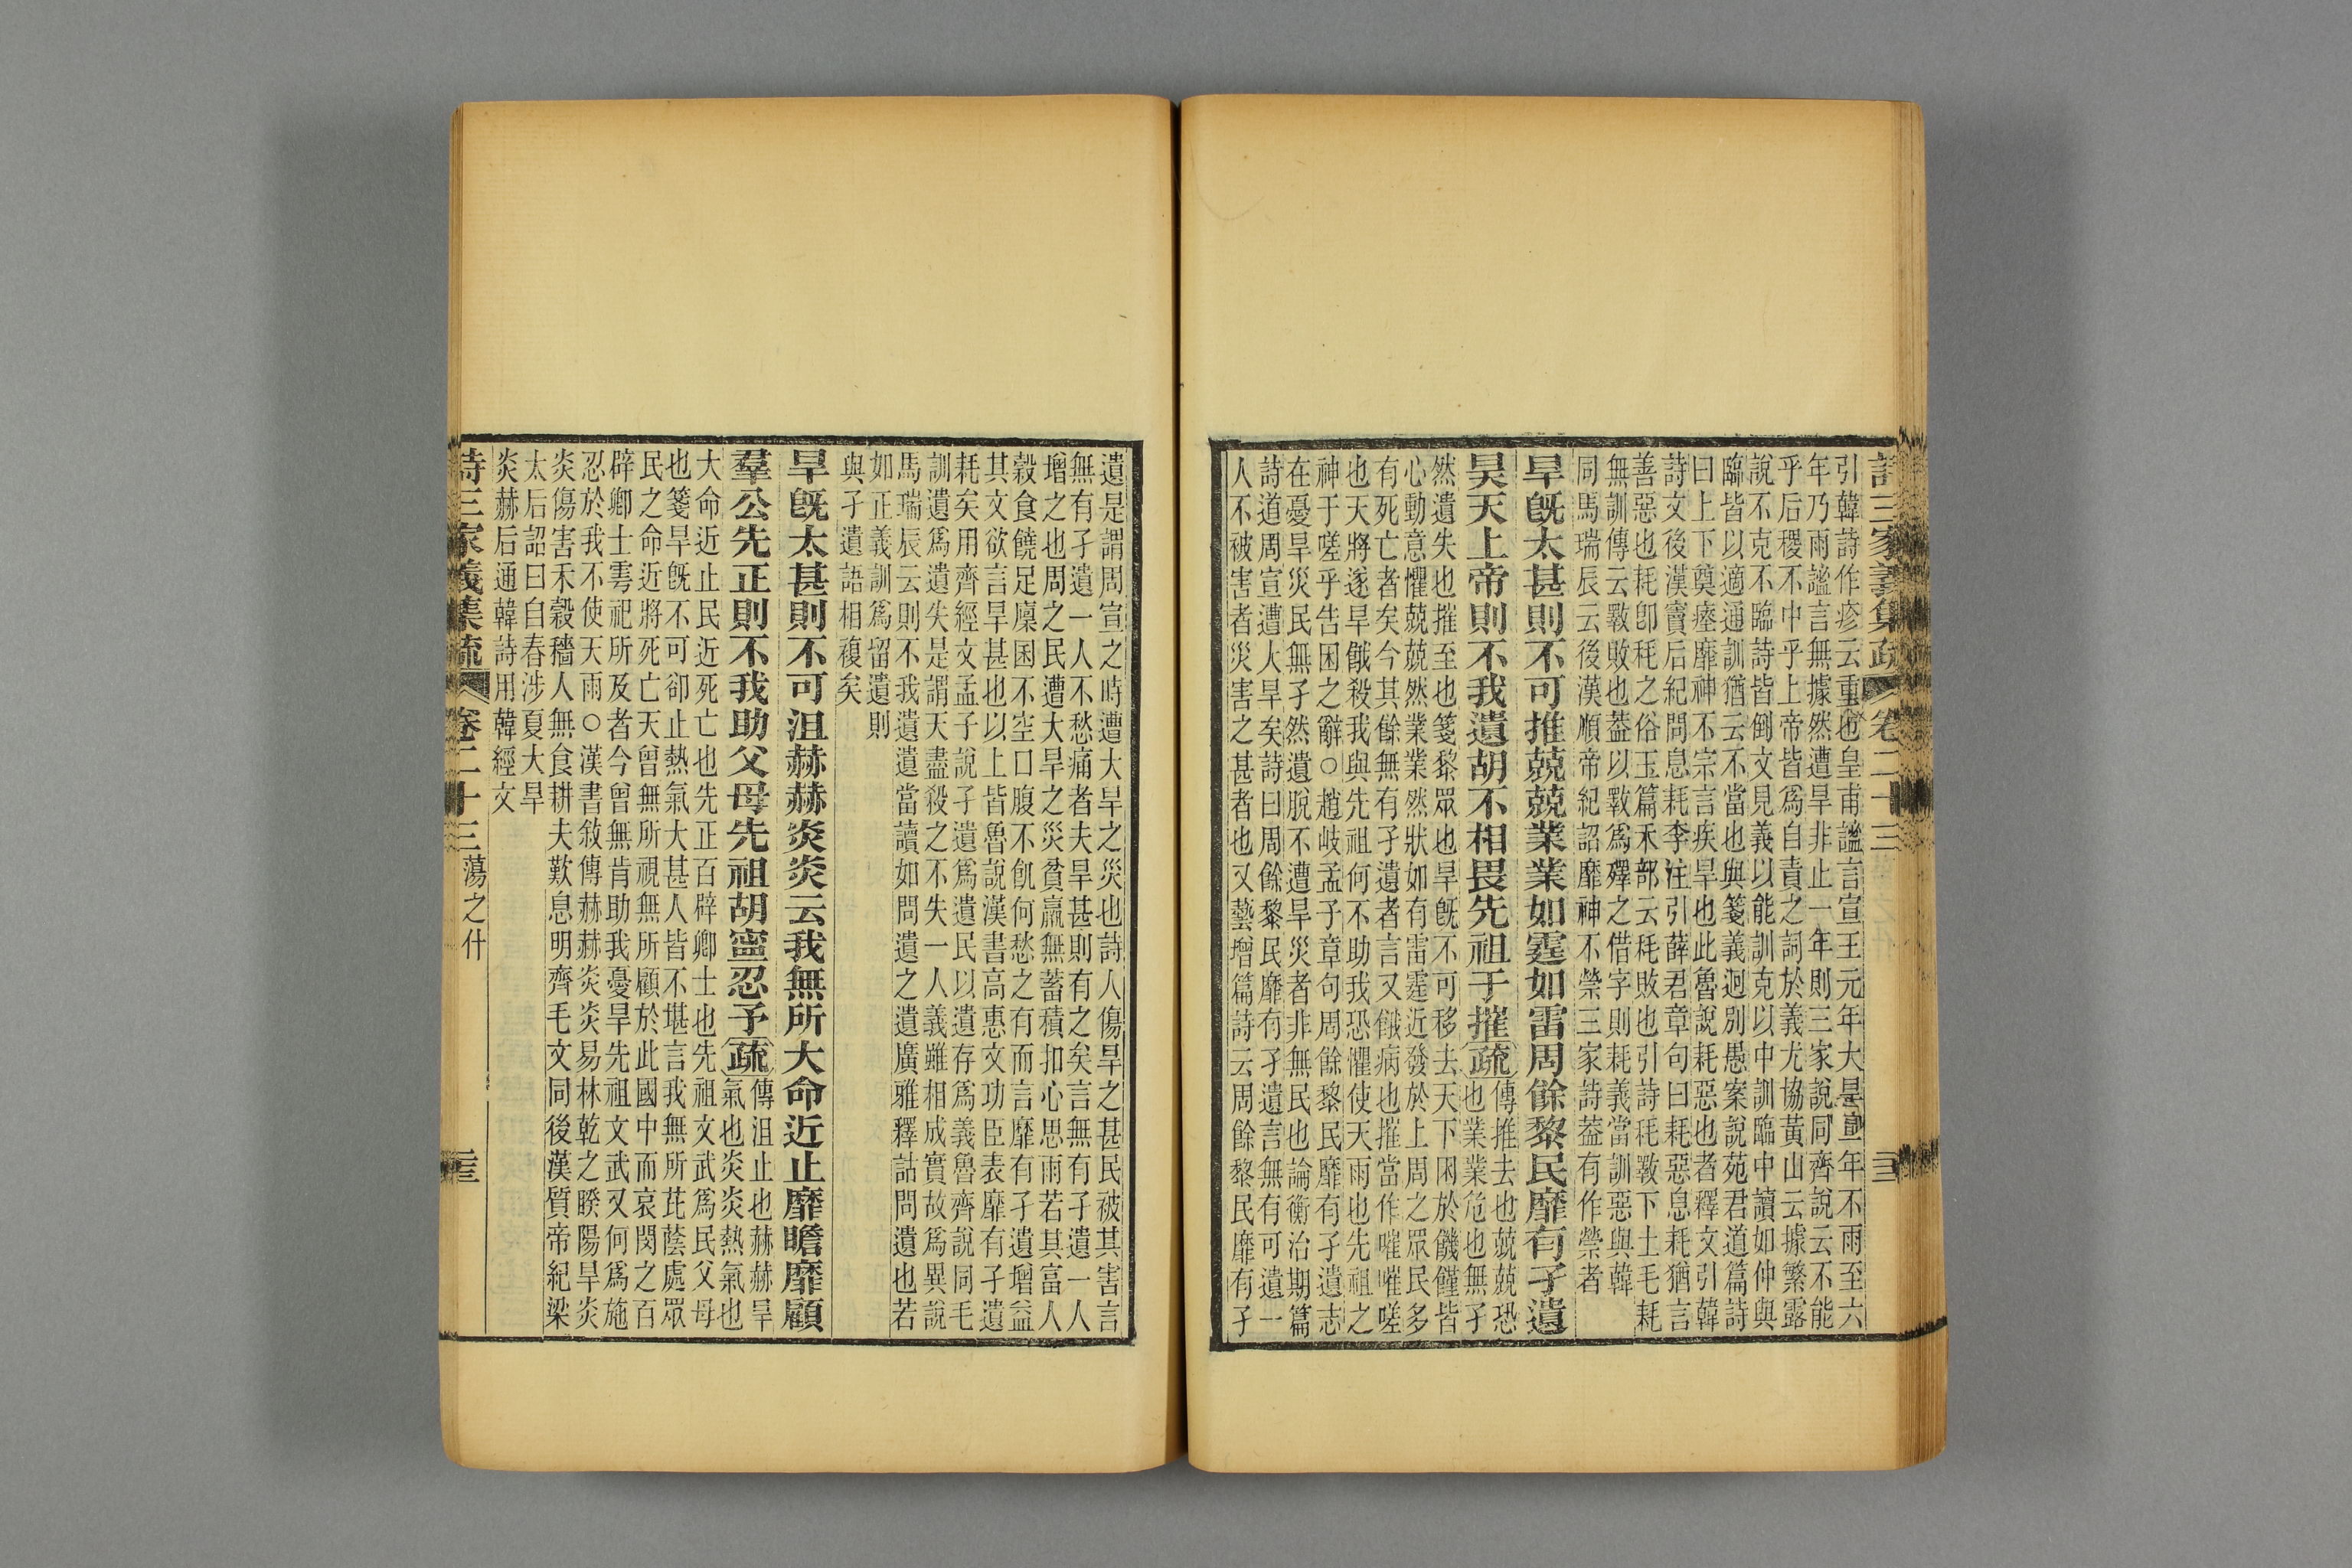 詩三家義集疏 卷二十三
引韓詩作疹云重也皇甫謐言宣王元年大旱二年不雨至六
年乃雨謐言無據然遭旱非止一年則三家說同齊說云不能
乎后稷不中乎上帝皆爲自責之詞於義尤協黃山云據繁露
說不克不臨詩皆倒文見義以能訓克以中訓臨中讀如仲與
臨皆以適通訓猶云不當也與箋義迥別愚案說苑君道篇詩
曰上下奠瘞靡神不宗言疾旱也此魯說耗惡也者釋文引韓
詩文後漢竇后紀問息耗李注引薛君章句曰耗惡息耗猶言
善惡也耗卽秏之俗玉篇禾部云秏敗也引詩秏斁下土毛耗
無訓傳云斁敗也葢以斁爲殬之借字則耗義當訓惡與韓
同馬瑞辰云後漢順帝紀詔靡神不禜三家詩葢有作禜者
旱旣太甚則不可推兢兢業業如霆如雷周餘黎民靡有孑遺
昊天上帝則不我遺胡不相畏先祖于摧疏傳推去也兢兢恐
也業業危也無孑
然遺失也摧至也箋黎眾也旱旣不可移去天下困於饑饉皆
心動意懼兢兢然業業然狀如有雷霆近發於上周之眾民多
有死亡者矣今其餘無有孑遺者言又餓病也摧當作嗺嗺嗟
也天將遂旱餓殺我與先祖何不助我恐懼使天雨也先祖之
神于嗟乎告困之辭○趙岐孟子章句周餘黎民靡有孑遺志
在憂旱災民無孑然遺脫不遭旱災者非無民也論衡治期篇
詩道周宣遭大旱矣詩曰周餘黎民靡有孑遺言無有可遺一
人不被害者災害之甚者也又藝增篇詩云周餘黎民靡有孑
遺是謂周宣之時遭大旱之災也詩人傷旱之甚民被其害言
無有孑遺一人不愁痛者夫旱甚則有之矣言無有孑遺一人
增之也周之民遭大旱之災貧羸無蓄積扣心思雨若其富人
穀食饒足廩囷不空口腹不飢何愁之有而言靡有孑遺增益
其文欲言旱甚也以上皆魯說漢書高惠文功臣表靡有孑遺
耗矣用齊經文孟子說孑遺爲遺民以遺存爲義魯齊說同毛
訓遺爲遺失是謂天盡殺之不失一人義雖相成實故爲異說
馬瑞辰云則不我遺遺當讀如問遺之遺廣雅釋詁問遺也若
如正義訓爲留遺則
與孑遺語相複矣
旱旣太甚則不可沮赫赫炎炎云我無所大命近止靡瞻靡顧
羣公先正則不我助父母先祖胡寧忍予疏傳沮止也赫赫旱
氣也炎炎熱氣也
大命近止民近死亡也先正百辟卿士也先祖文武爲民父母
也箋旱旣不可卻止熱氣大甚人皆不堪言我無所芘蔭處眾
民之命近將死亡天曾無所視無所顧於此國中而哀閔之百
辟卿士雩祀所及者今曾無肯助我憂旱先祖文武又何爲施
忍於我不使天雨○漢書敘傳赫赫炎炎易林乾之睽陽旱炎
炎傷害禾穀穡人無食耕夫歎息明齊毛文同後漢質帝紀梁
太后詔曰自春涉夏大旱
炎赫后通韓詩用韓經文
詩三家義集疏 卷二十三 蕩之什